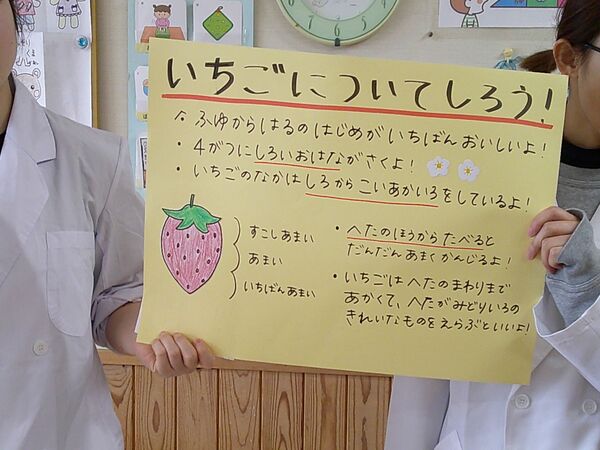 いちごについてしろう!
・ふゆからはるのはじめがいちばんおいしいよ!
・4がつにしろいおはながさくよ!
・いちごのなかはしろからこいあかいろをしているよ!
すこしあまい
あまい
いちばんあまい
・へたのほうからたべると
だんだんあまくかんじるよ!
・いちごはへたのまわりまで
あかくて、へたがみどりいろの
きれいなものをえらぶといいよ!